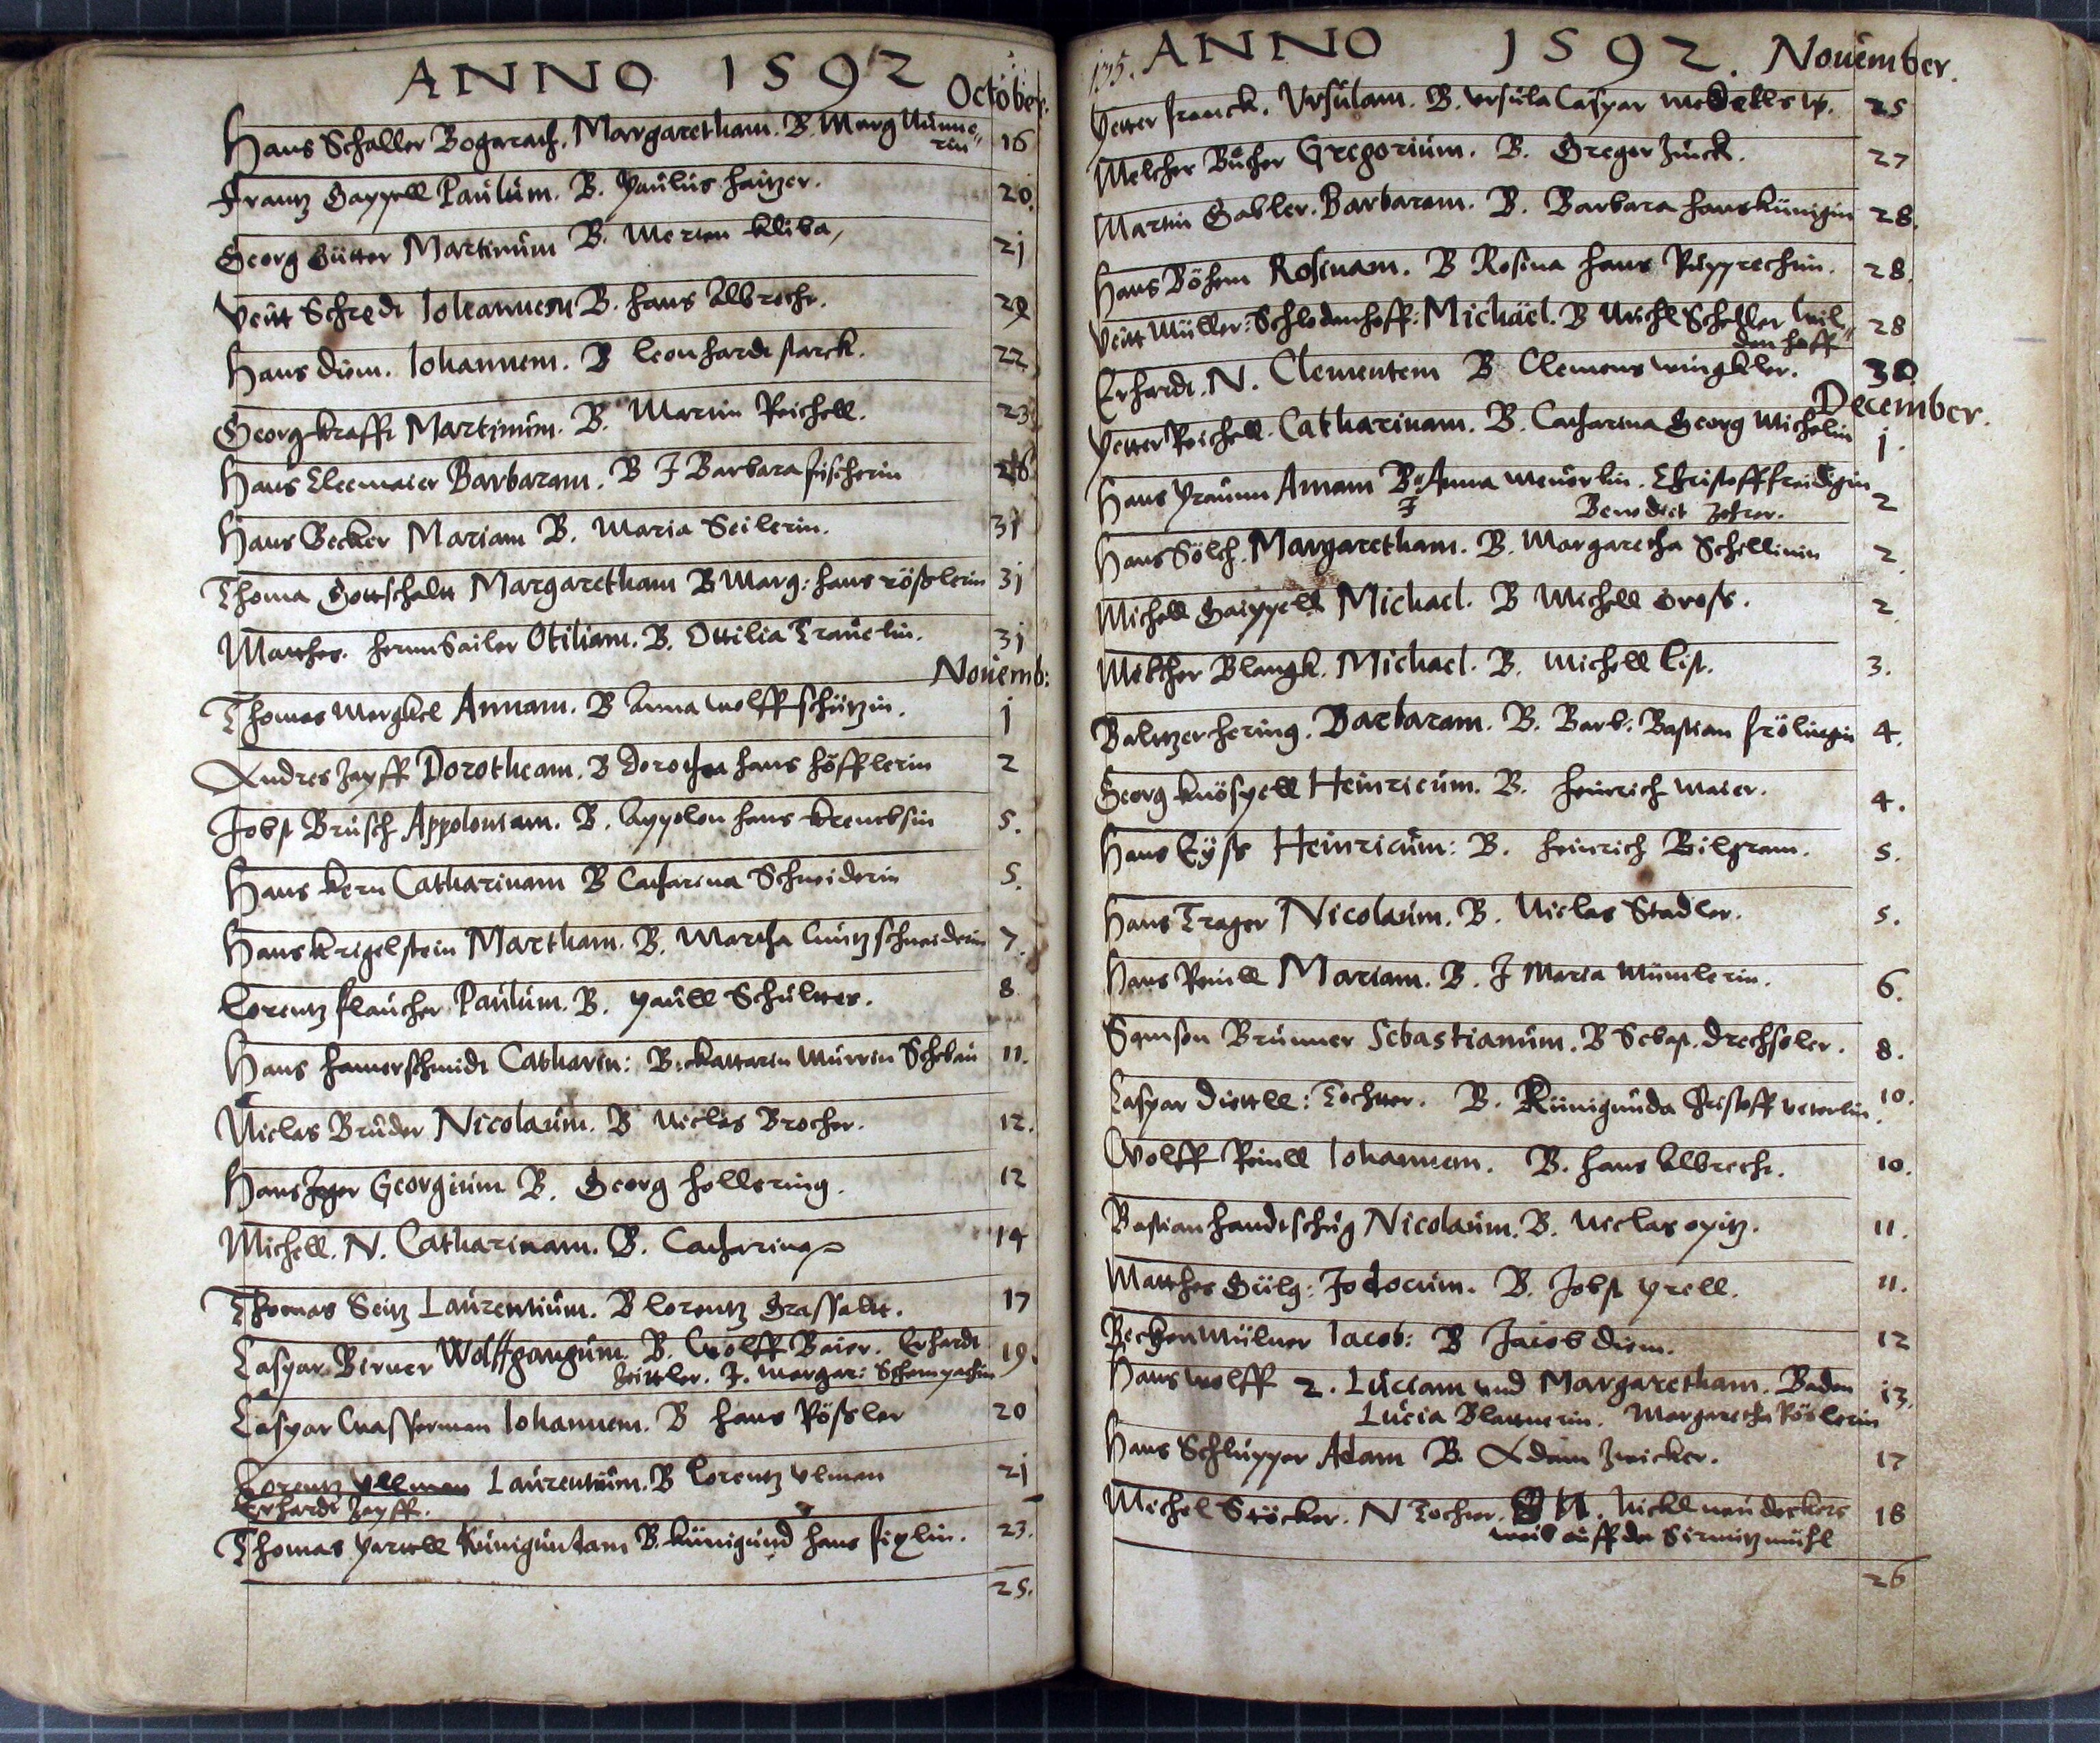 ANNO 1592
October:
Hans Schaller Bogarach. Margaretham. B. Marg Nunne„
rin 16
Frantz Gappell Paulum. B. Paulus haitzer. 20.
Georg Gütter Martinum B. Merten Kliba, 21
Veitt Schredt Iohannem B. Hans Albrecht. 29
Hans diem. Iohannem. B Leonhardt starck. 22
Georg krafft Martinum. B. Martin Reichell. 23
Hans Cleemaier Barbaram. B J Barbara fischerin 26
Hans Becker Mariam B. Maria Seilerin. 31
Thoma Gottschaltt Margaretham B Marg: hans rößlerin 31
Matthes. hermSailer Otiliam. B. Ottilia Trauelin. 31
Nouemb:
Thomas Mergkel Annam. B Anna wolff schützin. 1
Andres Zapff Dorotheam. B dorothea hans höfflerin 2
Jobst Brusch Appoloniam. B. Appolon hans Krencksin 5.
Hans Kern Catharinam B Catharina Schneiderin 5.
Hans krigelstein Martham. B. Martha Cuntz schneiderin 7.
Lorentz flaucher Paulum. B. paull Schulttes. 8
Hans hamerschmidt Catharin: B. Kattarin Murrin 11.
Niclas Bruder Nicolaum. B Niclas Brocher. 12.
Hans Jeger Georgium B. Georg hollering. 12
Michell. N. Catharinam. B. Catharina 14
Thomas Seitz Laurentium. B Lorentz Grassaltt. 17
Caspar Birner Wolffgangum. B. Wolff Baier. Erhardt 19.
Zeittler. J. Margar: Schampachin
Caspar Wasserman Iohannem. B Hans Rößler 20
Lorentz Ullman Laurentium. B Lorentz Ulman 21
Erhardt Zapff.
Thomas partell Kunigundam B. Künigund hans pixlin. 23.
25.
175. ANNO 1592. Nouember.
Petter franck. Ursulam. B. Ursula Caspar 25
Melcher Bucher Gregorium. B. Greger Zinck. 27
Martin Gabler. Barbaram. B. Barbara hans künigin 28.
Hans Böhem Rosinam. B Rosina hans Rupprechtin. 28.
Veitt Müller: Schlodenhoff: Michäel. B Michl Scheller Wil„ 28
den hoff
Erhardt. N. Clementem B Clemens wingkler. 30
December.
Petter Reichell. Catharinam. B. Catharina Georg Michelin 1.
Hans praunn Annam B. Anna meuerlin. Christoff freidigin 2
J Benedict Zehrer.
Hans Sölch. Margaretham. B. Margaretha Schellinin 2.
Michell Gaippell Michael. B Michell Groß. 2.
Melcher Blangk. Michael. B. Michell List. 3.
Baltzer hering. Barbaram. B. Barb: Bastian frölingin 4.
Georg knöspell Heinricum. B. Heinrich Maier. 4.
Hans Eyß Heinricum: B. Heinrich Bilgram. 5.
Hans Trager Nicolaum. B. Niclas Stadler. 5.
Hans Reinll Mariam. B. J Maria Mümlerin. 6.
Samson Brunner Sebastianum. B Sebast. drechsler. 8.
Caspar diettll: Tochtter. B. Künigunda Cristoff Veterlin 10.
Wolff Reinll Iohannem. B. Hans Albrecht. 10.
Bastian handtschug Nicolaum. B. Niclas opitz. 11.
Matthes Gülg: Jodocum. B. Jobst prell. 11.
BeckenMülner Iacob: B Jacob diem. 12
Hans wolff 2. Luciam und Margaretham. Baden 13.
Lucia Blattnerin. Margaretha Röslerin
Hans Schlupper Adam B. Adam Zwicker. 17
Michel Stöcker. N Tochter. N. Nickl deckers 18
weib auff der Sirmitzmühl
26